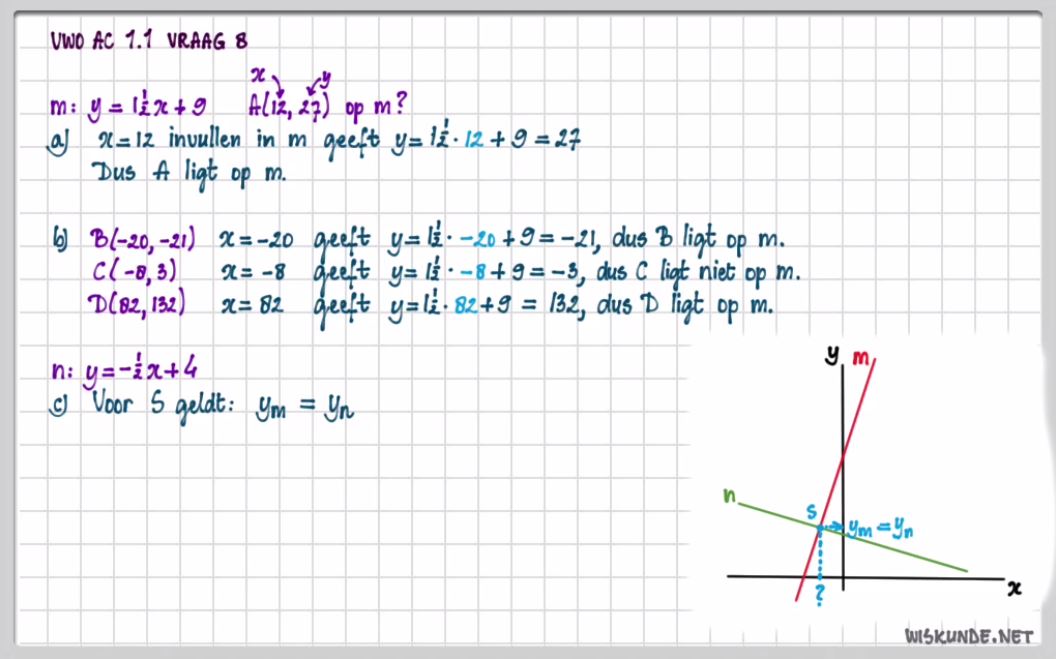 VWO AC 1.1 VRAAG 8
x y
m: y = 1½x + 9 A(12, 27) op m?
a) x = 12 invullen in m geeft y = 1½ · 12 + 9 = 27
Dus A ligt op m.
b) B(-20, -21) x = -20 geeft y = 1½ · -20 + 9 = -21, dus B ligt op m.
C(-8, 3) x = -8 geeft y = 1½ · -8 + 9 = -3, dus C ligt niet op m.
D(82, 132) x = 82 geeft y = 1½ · 82 + 9 = 132, dus D ligt op m.
n: y = -½x + 4
c) Voor S geldt: yₘ = yₙ
y m
n
S
yₘ = yₙ
x
?
WISKUNDE.NET